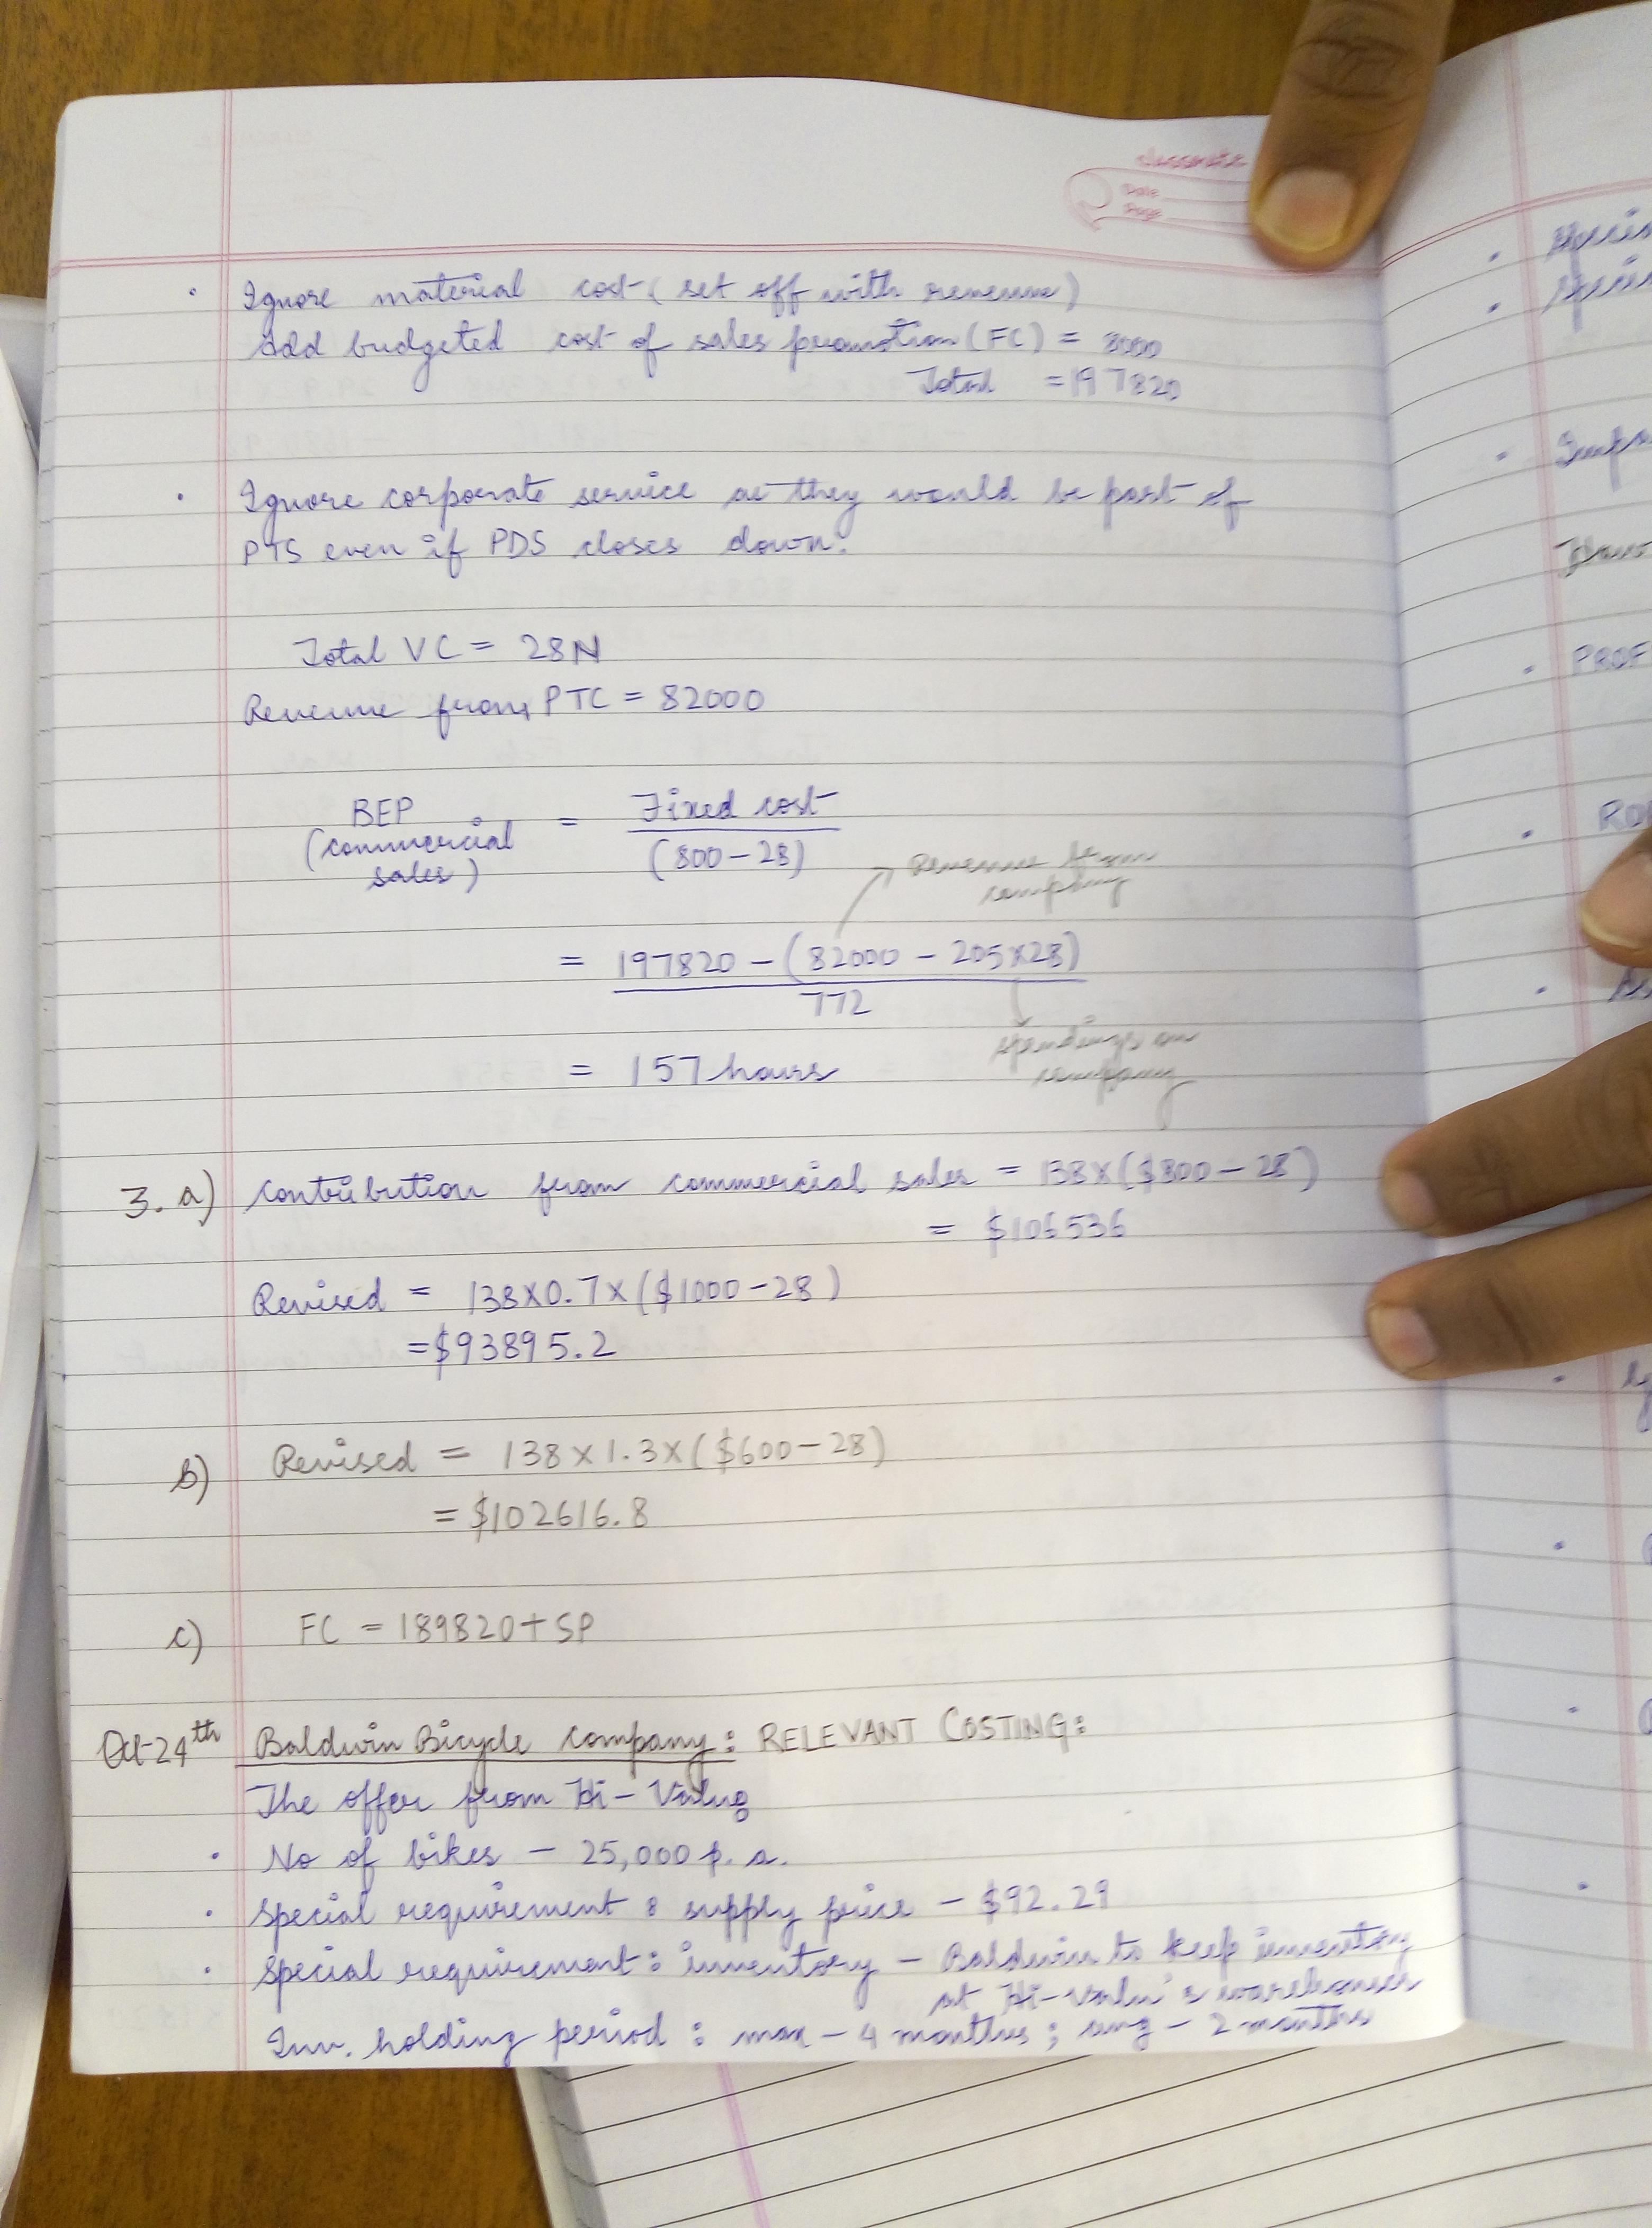 classmate
Date
Page
• Ignore material cost (set off with revenue)
Add budgeted cost of sales promotion (FC) = 8000
Total = 197820
• Ignore corporate service as they would be part of
PTS even if PDS closes down.
Total VC = 28N
Revenue from PTC = 82000
BEP (commercial sales) = Fixed cost / (800-28)
Revenue from company
= 197820 - (82000 - 205×28) / 772
Spendings on company
= 157 hours
3. a) Contribution from commercial sales = 138×($800-28)
= $106536
Revised = 138×0.7×($1000-28)
= $93895.2
b) Revised = 138×1.3×($600-28)
= $102616.8
c) FC = 189820+SP
Oct 24th Baldwin Bicycle Company: RELEVANT COSTING:
The offer from Hi-Value
• No of bikes - 25,000 p.a.
• Special requirement : supply price - $92.29
• Special requirement: inventory - Baldwin to keep inventory
at Hi-Value's warehouses
Inv. holding period : max - 4 months ; avg - 2 months
PROF